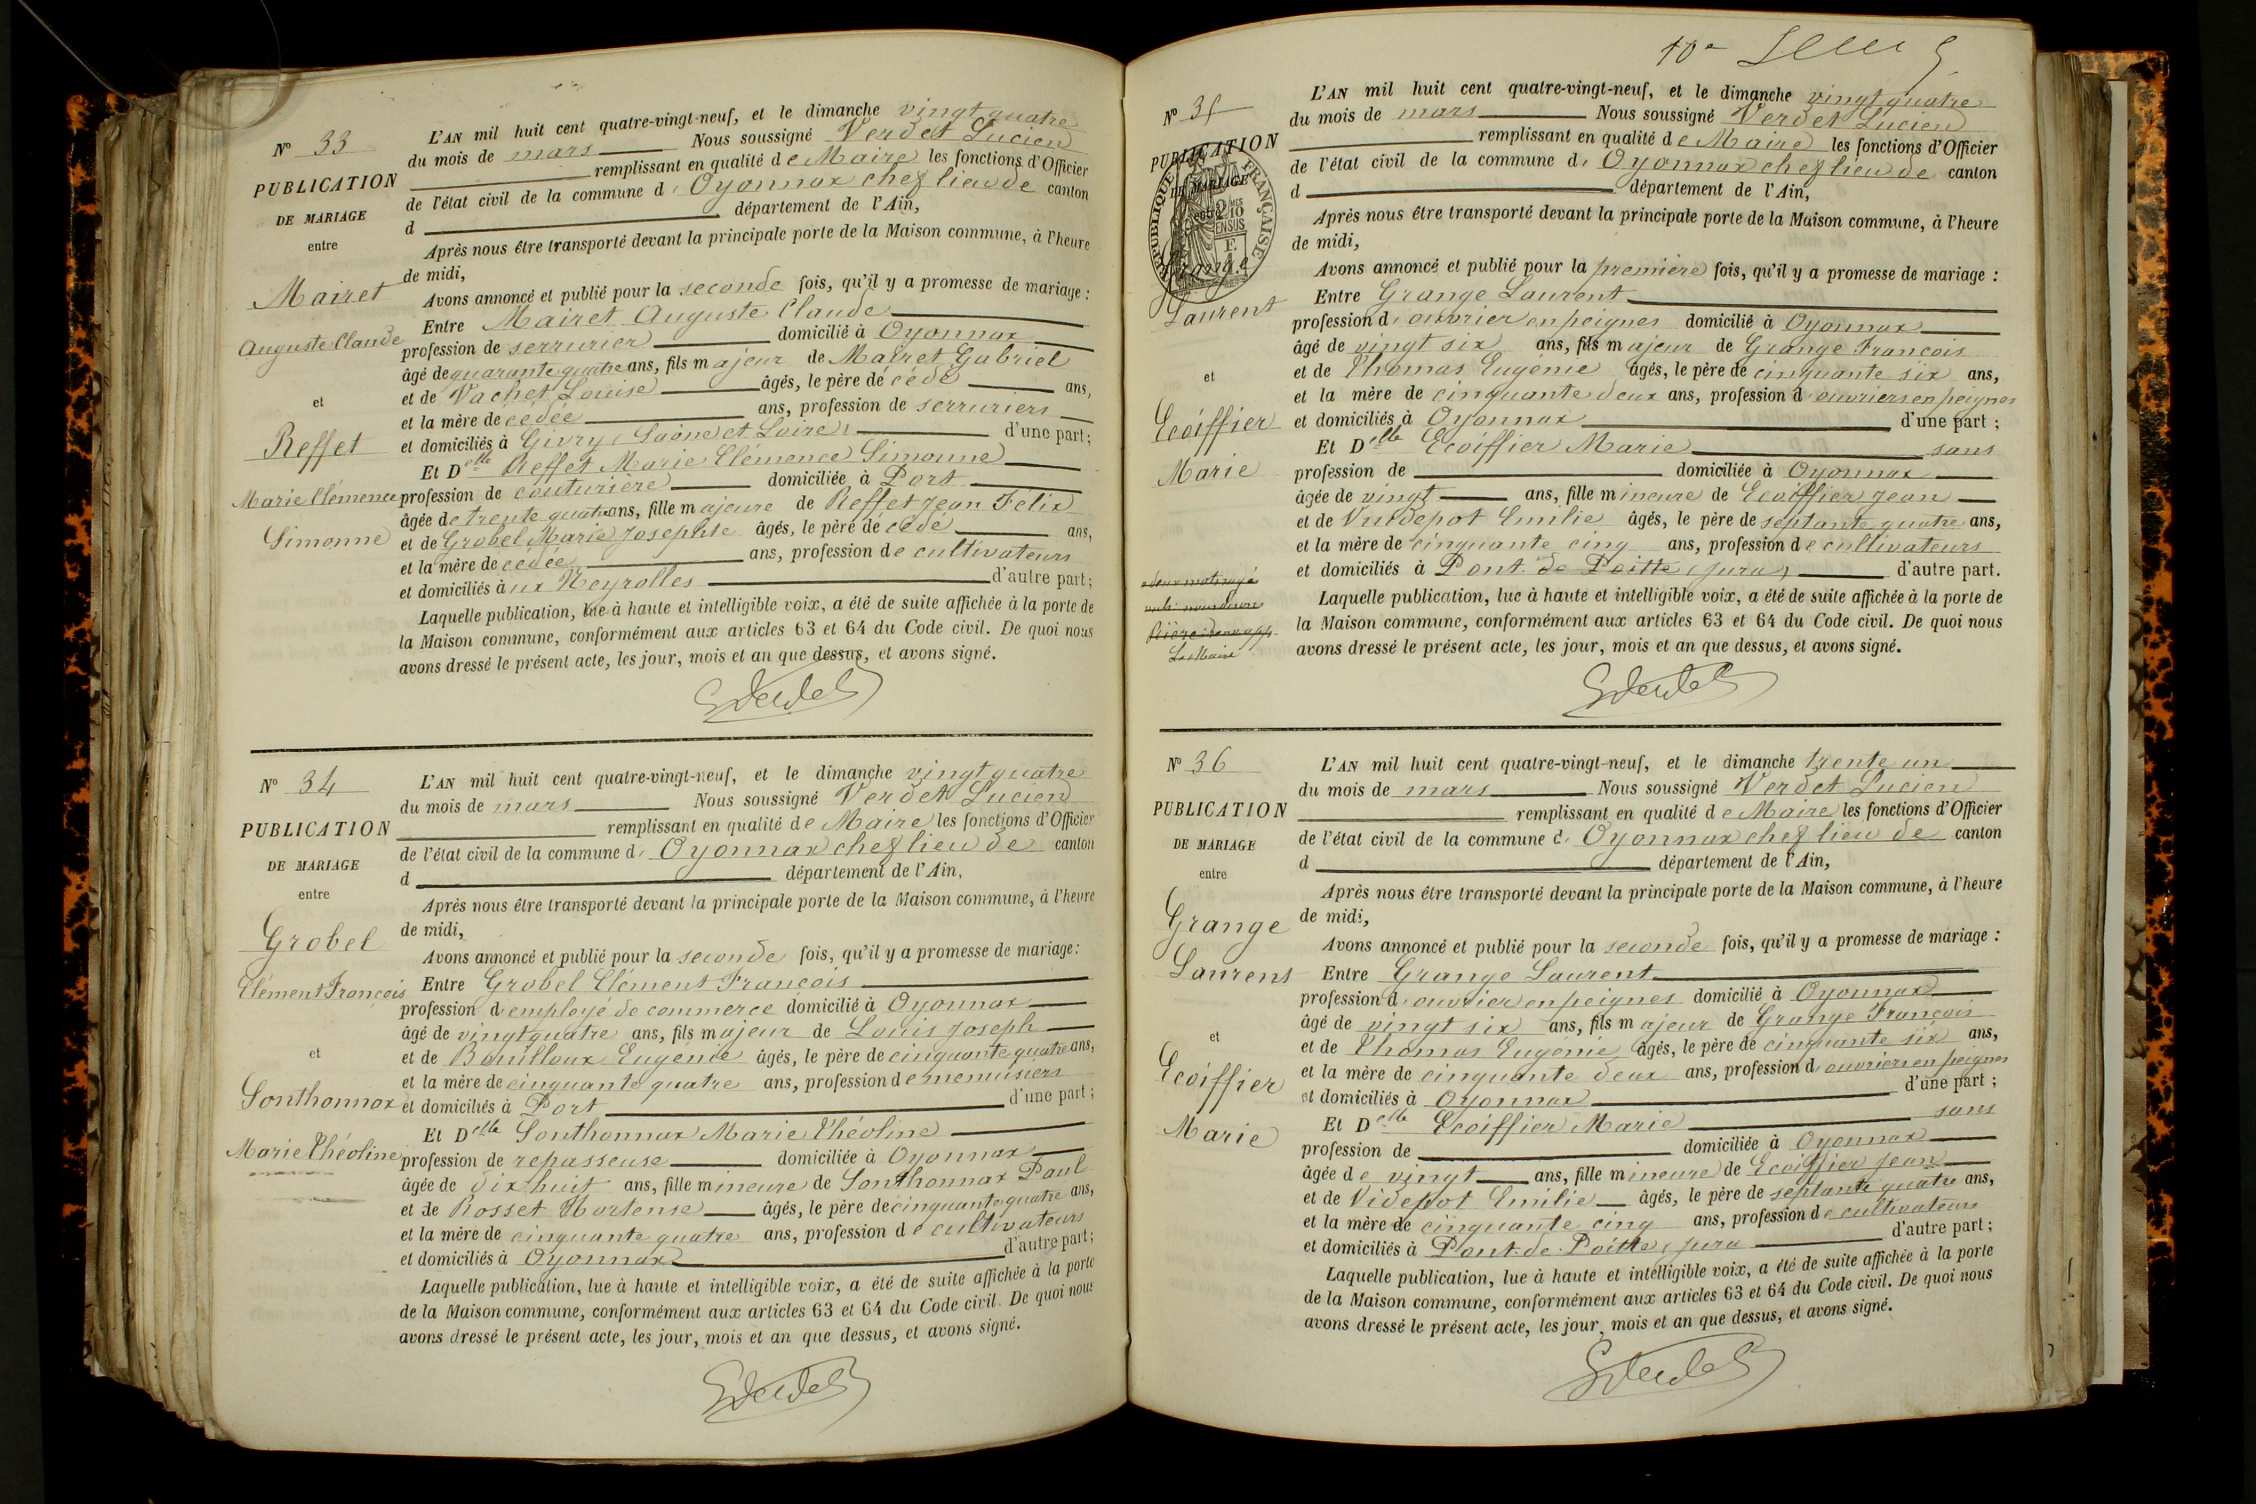 Nº 33
PUBLICATION
DE MARIAGE
entre
Mairet
Auguste Claude
et
Reffet
Marie Clémence
Simonne
L'AN mil huit cent quatre-vingt-neuf, et le dimanche vingt quatre
du mois de mars Nous soussigné Verdet Lucien
remplissant en qualité de Maire les fonctions d'Officier
de l'état civil de la commune d' Oyonnax chef lieu de canton
d département de l'Ain,
Après nous être transporté devant la principale porte de la Maison commune, à l'heure
de midi,
Avons annoncé et publié pour la seconde fois, qu'il y a promesse de mariage :
Entre Mairet Auguste Claude
profession de serrurier domicilié à Oyonnax
âgé de quarante quatre ans, fils majeur de Mairet Gabriel
et de Vachet Louise âgés, le père décédé ans,
et la mère décédée ans, profession de serruriers
et domiciliés à Givry (Saône et Loire) d'une part ;
Et Delle Reffet Marie Clémence Simonne
profession de couturière domiciliée à Port
âgée de trente quatre ans, fille majeure de Reffet Jean Félix
et de Grobel Marie Josephte âgés, le père décédé ans,
et la mère décédée ans, profession de cultivateurs
et domiciliés aux Neyrolles d'autre part ;
Laquelle publication, lue à haute et intelligible voix, a été de suite affichée à la porte de
la Maison commune, conformément aux articles 63 et 64 du Code civil. De quoi nous
avons dressé le présent acte, les jour, mois et an que dessus, et avons signé.
Verdet
Nº 34
PUBLICATION
DE MARIAGE
entre
Grobel
Clément François
et
Sonthonnax
Marie Théoline
L'AN mil huit cent quatre-vingt-neuf, et le dimanche vingt quatre
du mois de mars Nous soussigné Verdet Lucien
remplissant en qualité de Maire les fonctions d'Officier
de l'état civil de la commune d' Oyonnax chef lieu de canton
d département de l'Ain,
Après nous être transporté devant la principale porte de la Maison commune, à l'heure
de midi,
Avons annoncé et publié pour la seconde fois, qu'il y a promesse de mariage :
Entre Grobel Clément François
profession d'employé de commerce domicilié à Oyonnax
âgé de vingt quatre ans, fils majeur de Louis Joseph
et de Bouilloux Eugenie âgés, le père de cinquante quatre ans,
et la mère de cinquante quatre ans, profession de menuisiers
et domiciliés à Port d'une part ;
Et Delle Sonthonnax Marie Théoline
profession de repasseuse domiciliée à Oyonnax
âgée de dix huit ans, fille mineure de Sonthonnax Paul
et de Rosset Hortense âgés, le père de cinquante quatre ans,
et la mère de cinquante quatre ans, profession de cultivateurs
et domiciliés à Oyonnax d'autre part ;
Laquelle publication, lue à haute et intelligible voix, a été de suite affichée à la porte
de la Maison commune, conformément aux articles 63 et 64 du Code civil. De quoi nous
avons dressé le présent acte, les jour, mois et an que dessus, et avons signé.
Verdet
10e
Nº 35
PUBLICATION
DE MARIAGE
RÉPUBLIQUE FRANÇAISE
2/10
EN SUS
Grange
Laurent
et
Ecoiffier
Marie
Le Maire
L'AN mil huit cent quatre-vingt-neuf, et le dimanche vingt quatre
du mois de mars Nous soussigné Verdet Lucien
remplissant en qualité de Maire les fonctions d'Officier
de l'état civil de la commune d' Oyonnax chef lieu de canton
d département de l'Ain,
Après nous être transporté devant la principale porte de la Maison commune, à l'heure
de midi,
Avons annoncé et publié pour la première fois, qu'il y a promesse de mariage :
Entre Grange Laurent
profession d' ouvrier en peignes domicilié à Oyonnax
âgé de vingt six ans, fils majeur de Grange François
et de Thomas Eugénie âgés, le père de cinquante six ans,
et la mère de cinquante deux ans, profession d'ouvriers en peignes
et domiciliés à Oyonnax d'une part ;
Et Delle Ecoiffier Marie sans
profession de domiciliée à Oyonnax
âgée de vingt ans, fille mineure de Ecoiffier Jean
et de Vuidepot Emilie âgés, le père de septante quatre ans,
et la mère de cinquante cinq ans, profession de cultivateurs
et domiciliés à Pont de Poitte (Jura) d'autre part.
Laquelle publication, lue à haute et intelligible voix, a été de suite affichée à la porte de
la Maison commune, conformément aux articles 63 et 64 du Code civil. De quoi nous
avons dressé le présent acte, les jour, mois et an que dessus, et avons signé.
Verdet
Nº 36
PUBLICATION
DE MARIAGE
entre
Grange
Laurent
et
Ecoiffier
Marie
L'AN mil huit cent quatre-vingt-neuf, et le dimanche trente un
du mois de mars Nous soussigné Verdet Lucien
remplissant en qualité de Maire les fonctions d'Officier
de l'état civil de la commune d' Oyonnax chef lieu de canton
d département de l'Ain,
Après nous être transporté devant la principale porte de la Maison commune, à l'heure
de midi,
Avons annoncé et publié pour la seconde fois, qu'il y a promesse de mariage :
Entre Grange Laurent
profession d' ouvrier en peignes domicilié à Oyonnax
âgé de vingt six ans, fils majeur de Grange François
et de Thomas Eugénie âgés, le père de cinquante six ans,
et la mère de cinquante deux ans, profession d'ouvriers en peignes
et domiciliés à Oyonnax d'une part ;
Et Delle Ecoiffier Marie sans
profession de domiciliée à Oyonnax
âgée de vingt ans, fille mineure de Ecoiffier Jean
et de Videpot Emilie âgés, le père de septante quatre ans,
et la mère de cinquante cinq ans, profession de cultivateurs
et domiciliés à Pont de Poitte, Jura d'autre part ;
Laquelle publication, lue à haute et intelligible voix, a été de suite affichée à la porte
de la Maison commune, conformément aux articles 63 et 64 du Code civil. De quoi nous
avons dressé le présent acte, les jour, mois et an que dessus, et avons signé.
Verdet